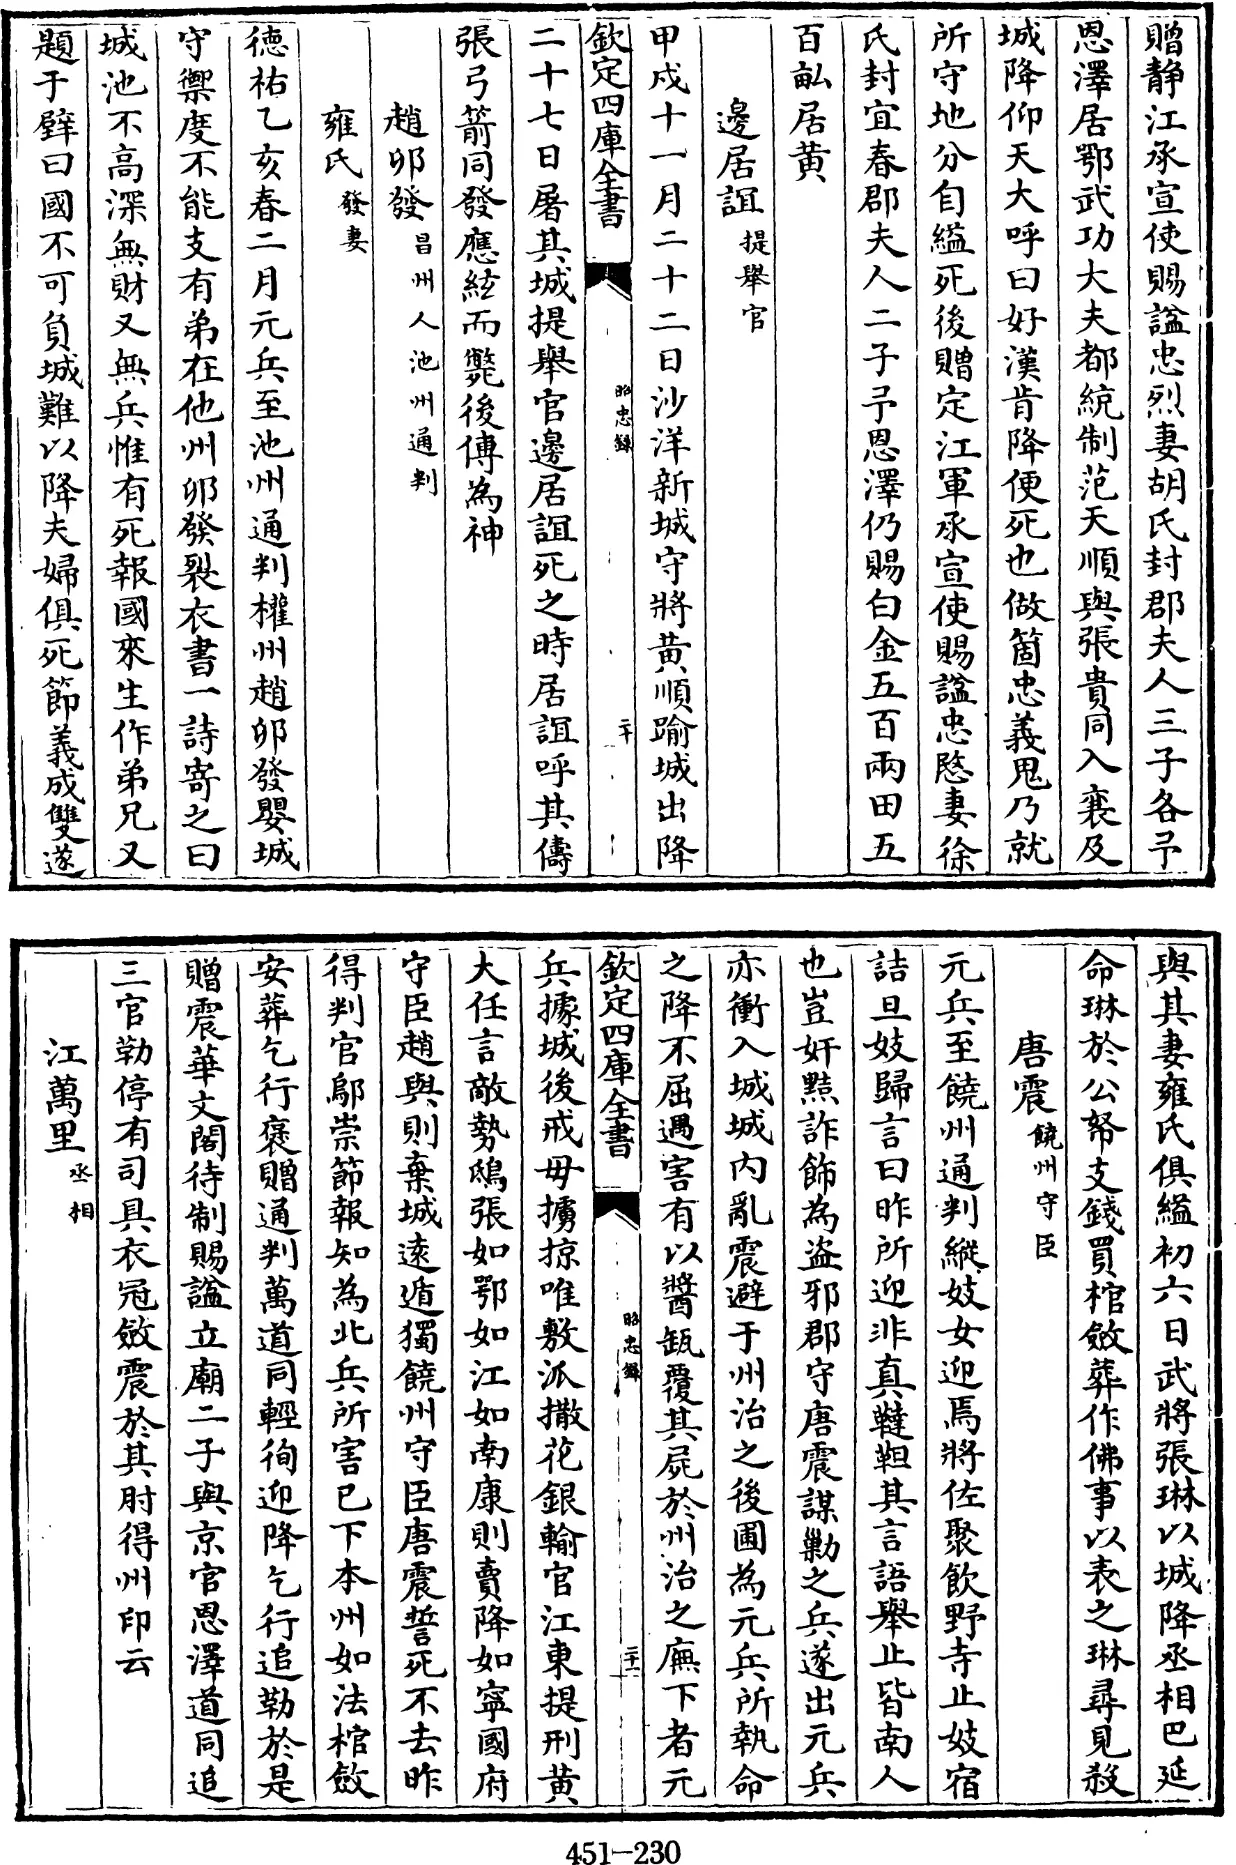 贈靜江承宣使賜諡忠烈妻胡氏封郡夫人三子各予
恩澤居鄂武功大夫都統制范天順與張貴同入襄及
城降仰天大呼曰好漢肯降便死也做箇忠義鬼乃就
所守地分自縊死後贈定江軍承宣使賜諡忠愍妻徐
氏封宜春郡夫人二子予恩澤仍賜白金五百兩田五
百畝居黄
邊居誼提舉官
甲戌十一月二十二日沙洋新城守將黄順踰城出降
欽定四庫全書 昭忠録 二十
二十七日屠其城提舉官邊居誼死之時居誼呼其儔
張弓箭同發應絃而斃後傳為神
趙卯發昌州人池州通判
雍氏發妻
德祐乙亥春二月元兵至池州通判權州趙卯發嬰城
守禦度不能支有弟在他州卯發裂衣書一詩寄之曰
城池不高深無財又無兵惟有死報國來生作弟兄又
題于壁曰國不可負城難以降夫婦俱死節義成雙遂
與其妻雍氏俱縊初六日武將張琳以城降丞相巴延
命琳於公帑支錢買棺斂葬作佛事以表之琳尋見殺
唐震饒州守臣
元兵至饒州通判縱妓女迎焉將佐聚飲野寺止妓宿
詰旦妓歸言曰昨所迎非真韃靼其言語舉止皆南人
也豈奸黠詐飾為盜邪郡守唐震謀勦之兵遂出元兵
亦衝入城城内亂震避于州治之後圃為元兵所執命
之降不屈遇害有以醬缻覆其屍於州治之廡下者元
欽定四庫全書 昭忠録 二十一
兵據城後戒毋擄掠唯敷派撒花銀輸官江東提刑黄
大任言敵勢鴟張如鄂如江如南康則賣降如寧國府
守臣趙與則棄城遠遁獨饒州守臣唐震誓死不去昨
得判官鄔崇節報知為北兵所害已下本州如法棺斂
安葬乞行褒贈通判萬道同輕徇迎降乞行追勒於是
贈震華文閣待制賜諡立廟二子與京官恩澤道同追
三官勒停有司具衣冠斂震於其肘得州印云
江萬里丞相
451-230